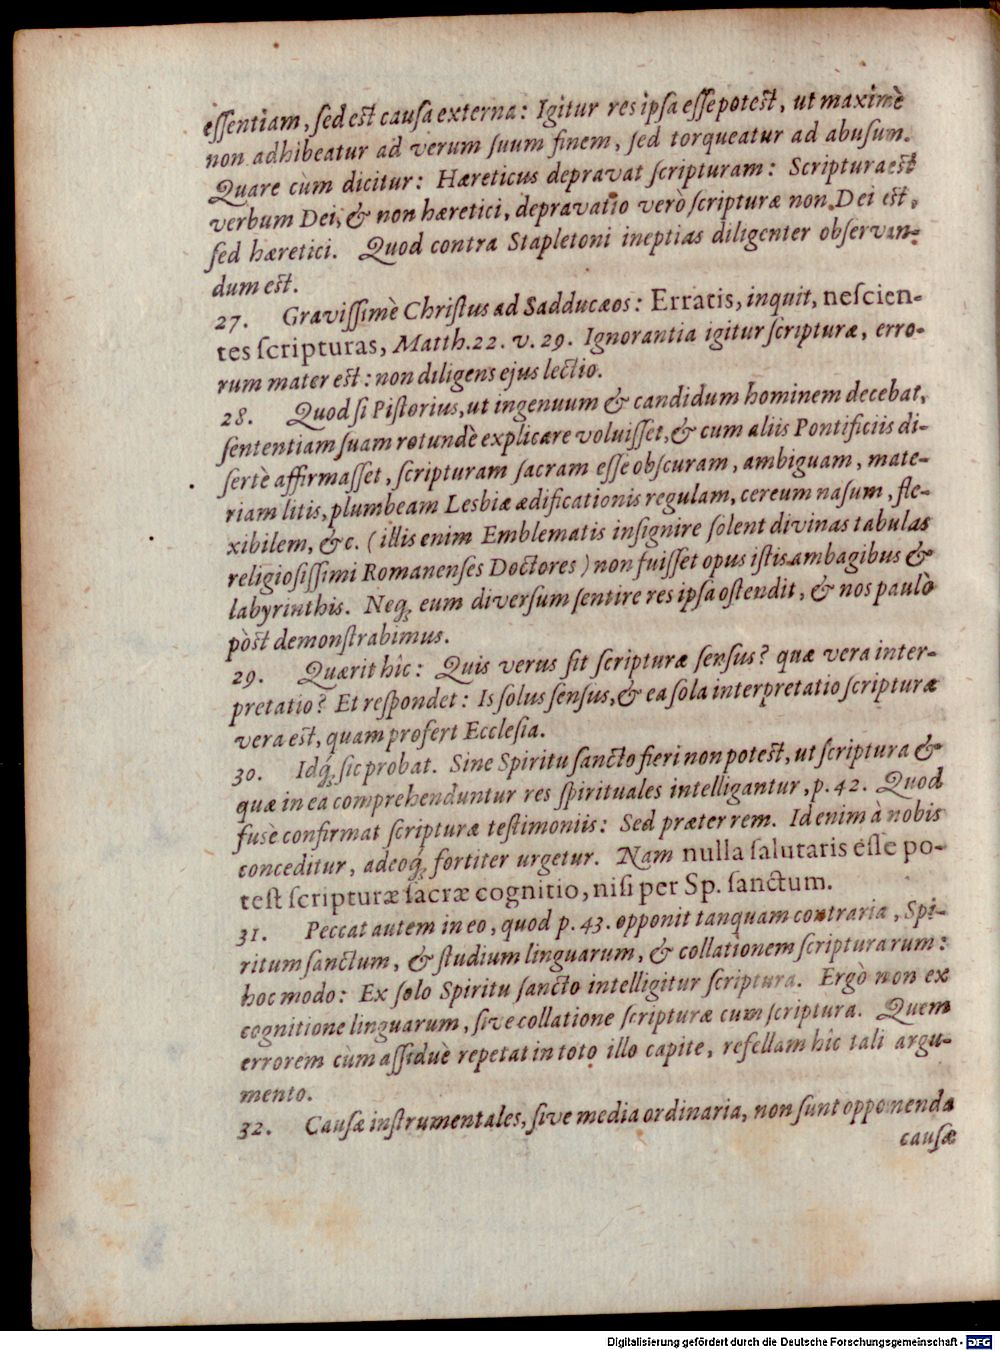 essentiam, sed est causa externa: Igitur res ipsa esse potest, ut maximè
non adhibeatur ad verum suum finem, sed torqueatur ad abusum.
Quare cùm dicitur: Hæreticus depravat scripturam: Scriptura est
verbum Dei, & non hæretici, depravatio verò scripturæ non Dei est,
sed hæretici. Quod contra Stapletoni ineptias diligenter observan-
dum est.
27. Gravissimè Christus ad Sadducæos: Erratis, inquit, nescien-
tes scripturas, Matth. 22. v. 29. Ignorantia igitur scripturæ, erro-
rum mater est: non diligens ejus lectio.
28. Quod si Pistorius, ut ingenuum & candidum hominem decebat,
sententiam suam rotundè explicare voluisset, & cum aliis Pontificiis di-
sertè affirmasset, scripturam sacram esse obscuram, ambiguam, mate-
riam litis, plumbeam Lesbiæ ædificationis regulam, cereum nasum, fle-
xibilem, &c. (illis enim Emblematis insignire solent divinas tabulas
religiosissimi Romanenses Doctores) non fuisset opus istis ambagibus &
labyrinthis. Neq́; eum diversum sentire res ipsa ostendit, & nos paulò
pòst demonstrabimus.
29. Quærit hîc: Quis verus sit scripturæ sensus? quæ vera inter-
pretatio? Et respondet: Is solus sensus, & ea sola interpretatio scripturæ
vera est, quam profert Ecclesia.
30. Idq́; sic probat. Sine Spiritu sancto fieri non potest, ut scriptura &
quæ in ea comprehenduntur res spirituales intelligantur, p. 42. Quod
fusè confirmat scripturæ testimoniis: Sed præter rem. Id enim à nobis
conceditur, adeoq́; fortiter urgetur. Nam nulla salutaris esse po-
test scripturæ sacræ cognitio, nisi per Sp. sanctum.
31. Peccat autem in eo, quod p. 43. opponit tanquam contraria, Spi-
ritum sanctum, & studium linguarum, & collationem scripturarum:
hoc modo: Ex solo Spiritu sancto intelligitur scriptura. Ergò non ex
cognitione linguarum, sive collatione scripturæ cum scriptura. Quem
errorem cùm assiduè repetat in toto illo capite, refellam hîc tali argu-
mento.
32. Causæ instrumentales, sive media ordinaria, non sunt opponenda
causæ
Digitalisierung gefördert durch die Deutsche Forschungsgemeinschaft - DFG